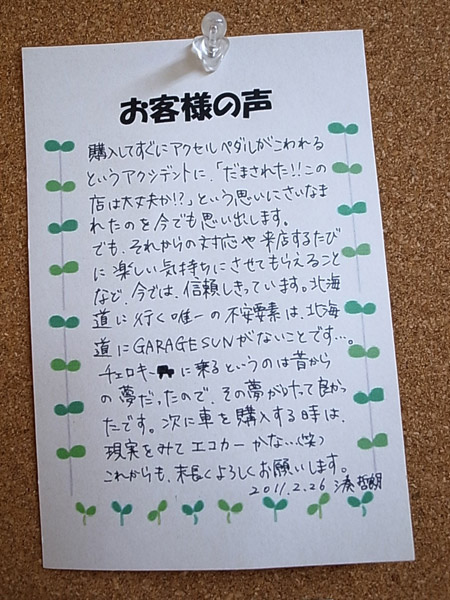 お客様の声
購入してすぐにアクセルペダルがこわれる
というアクシデントに、「だまされた!!この
店は大丈夫か!?」という思いにさいなま
れたのを今でも思い出します。
でも、それからの対応や来店するたび
に楽しい気持ちにさせてもらえること
など、今では、信頼しきっています。北海
道に行く唯一の不安要素は、北海
道にGARAGE SUNがないことです…。
チェロキーに乗るというのは昔から
の夢だったので、その夢が叶って良かっ
たです。次に車を購入する時は、
現実をみてエコカーかな…(笑)
これからも、末長くよろしくお願いします。
2011.2.26 湊哲朗